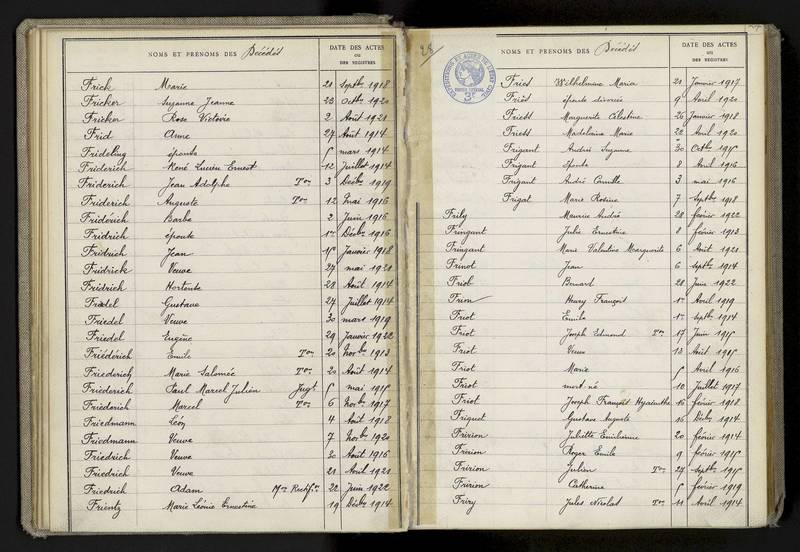 NOMS ET PRÉNOMS DES Décédés DATE DES ACTES OU DES REGISTRES
Frick Marie 21 Septbre 1918
Fricker Suzanne Jeanne 23 Octbre 1920
Fricker Rose Victoire 2 Août 1921
Frid Anne 27 Août 1914
Frideling épouse 5 mars 1914
Friderich René Lucien Ernest 12 Juillet 1914
Friderich Jean Adolphe Ton 3 Décbre 1919
Friderich Auguste Ton 12 Mai 1916
Friderich Barbe 2 Juin 1916
Fridrich épouse 1er Décbre 1916
Fridrich Jean 15 Janvier 1918
Fridrick Veuve 27 mai 1921
Fridrich Hortense 28 Août 1914
Friedel Gustave 27 Juillet 1914
Friedel Veuve 30 mars 1919
Friedel Eugène 29 Janvier 1922
Friédérich Emile Ton 20 Novbre 1913
Friederich Marie Salomée Ton 20 Août 1914
Friederich Paul Marcel Julien Jugt 5 mai 1915
Friederich Marcel Ton 6 Novbre 1917
Friedmann Léon 4 Août 1918
Friedmann Veuve 7 Novbre 1920
Friedrich Veuve 30 Août 1916
Friedrich Veuve 21 Avril 1921
Friedrich Adam Mon Rectifve 22 Juin 1922
Frientz Marie Léonie Ernestine 19 Décbre 1914
28
NOMS ET PRÉNOMS DES Décédés DATE DES ACTES OU DES REGISTRES
Fries Wilhelmine Maria 21 Janvier 1917
Friès épouse divorcée 9 Avril 1920
Friess Marguerite Célestine 26 Janvier 1918
Friess Madelaine Marie 22 Avril 1920
Frigant André Suzanne 30 Octbre 1915
Frigant épouse 8 Avril 1916
Frigant André Camille 3 mai 1916
Frigat Marie Rosine 7 Septbre 1918
Frily Maurice André 28 février 1922
Fringant Julie Ernestine 8 février 1913
Fringant Marie Valentine Marguerite 6 Août 1921
Frinot Jean 6 Septbre 1914
Friol Bernard 28 Juin 1922
Frion Henry François 1er Avril 1919
Friot Emile 1er Septbre 1914
Friot Joseph Edmond Ton 17 Juin 1915
Friot Veuve 13 Août 1915
Friot Marie 5 Avril 1916
Friot mort né 10 Juillet 1917
Friot Joseph François Hyacinthe 16 février 1918
Friquet Gustave Auguste 16 Décbre 1914
Fririon Juliette Emilienne 20 février 1914
Fririon Roger Emile 9 février 1915
Fririon Julien Ton 27 Septbre 1915
Fririon Catherine 5 février 1919
Friry Jules Nicolas Ton 11 Avril 1914